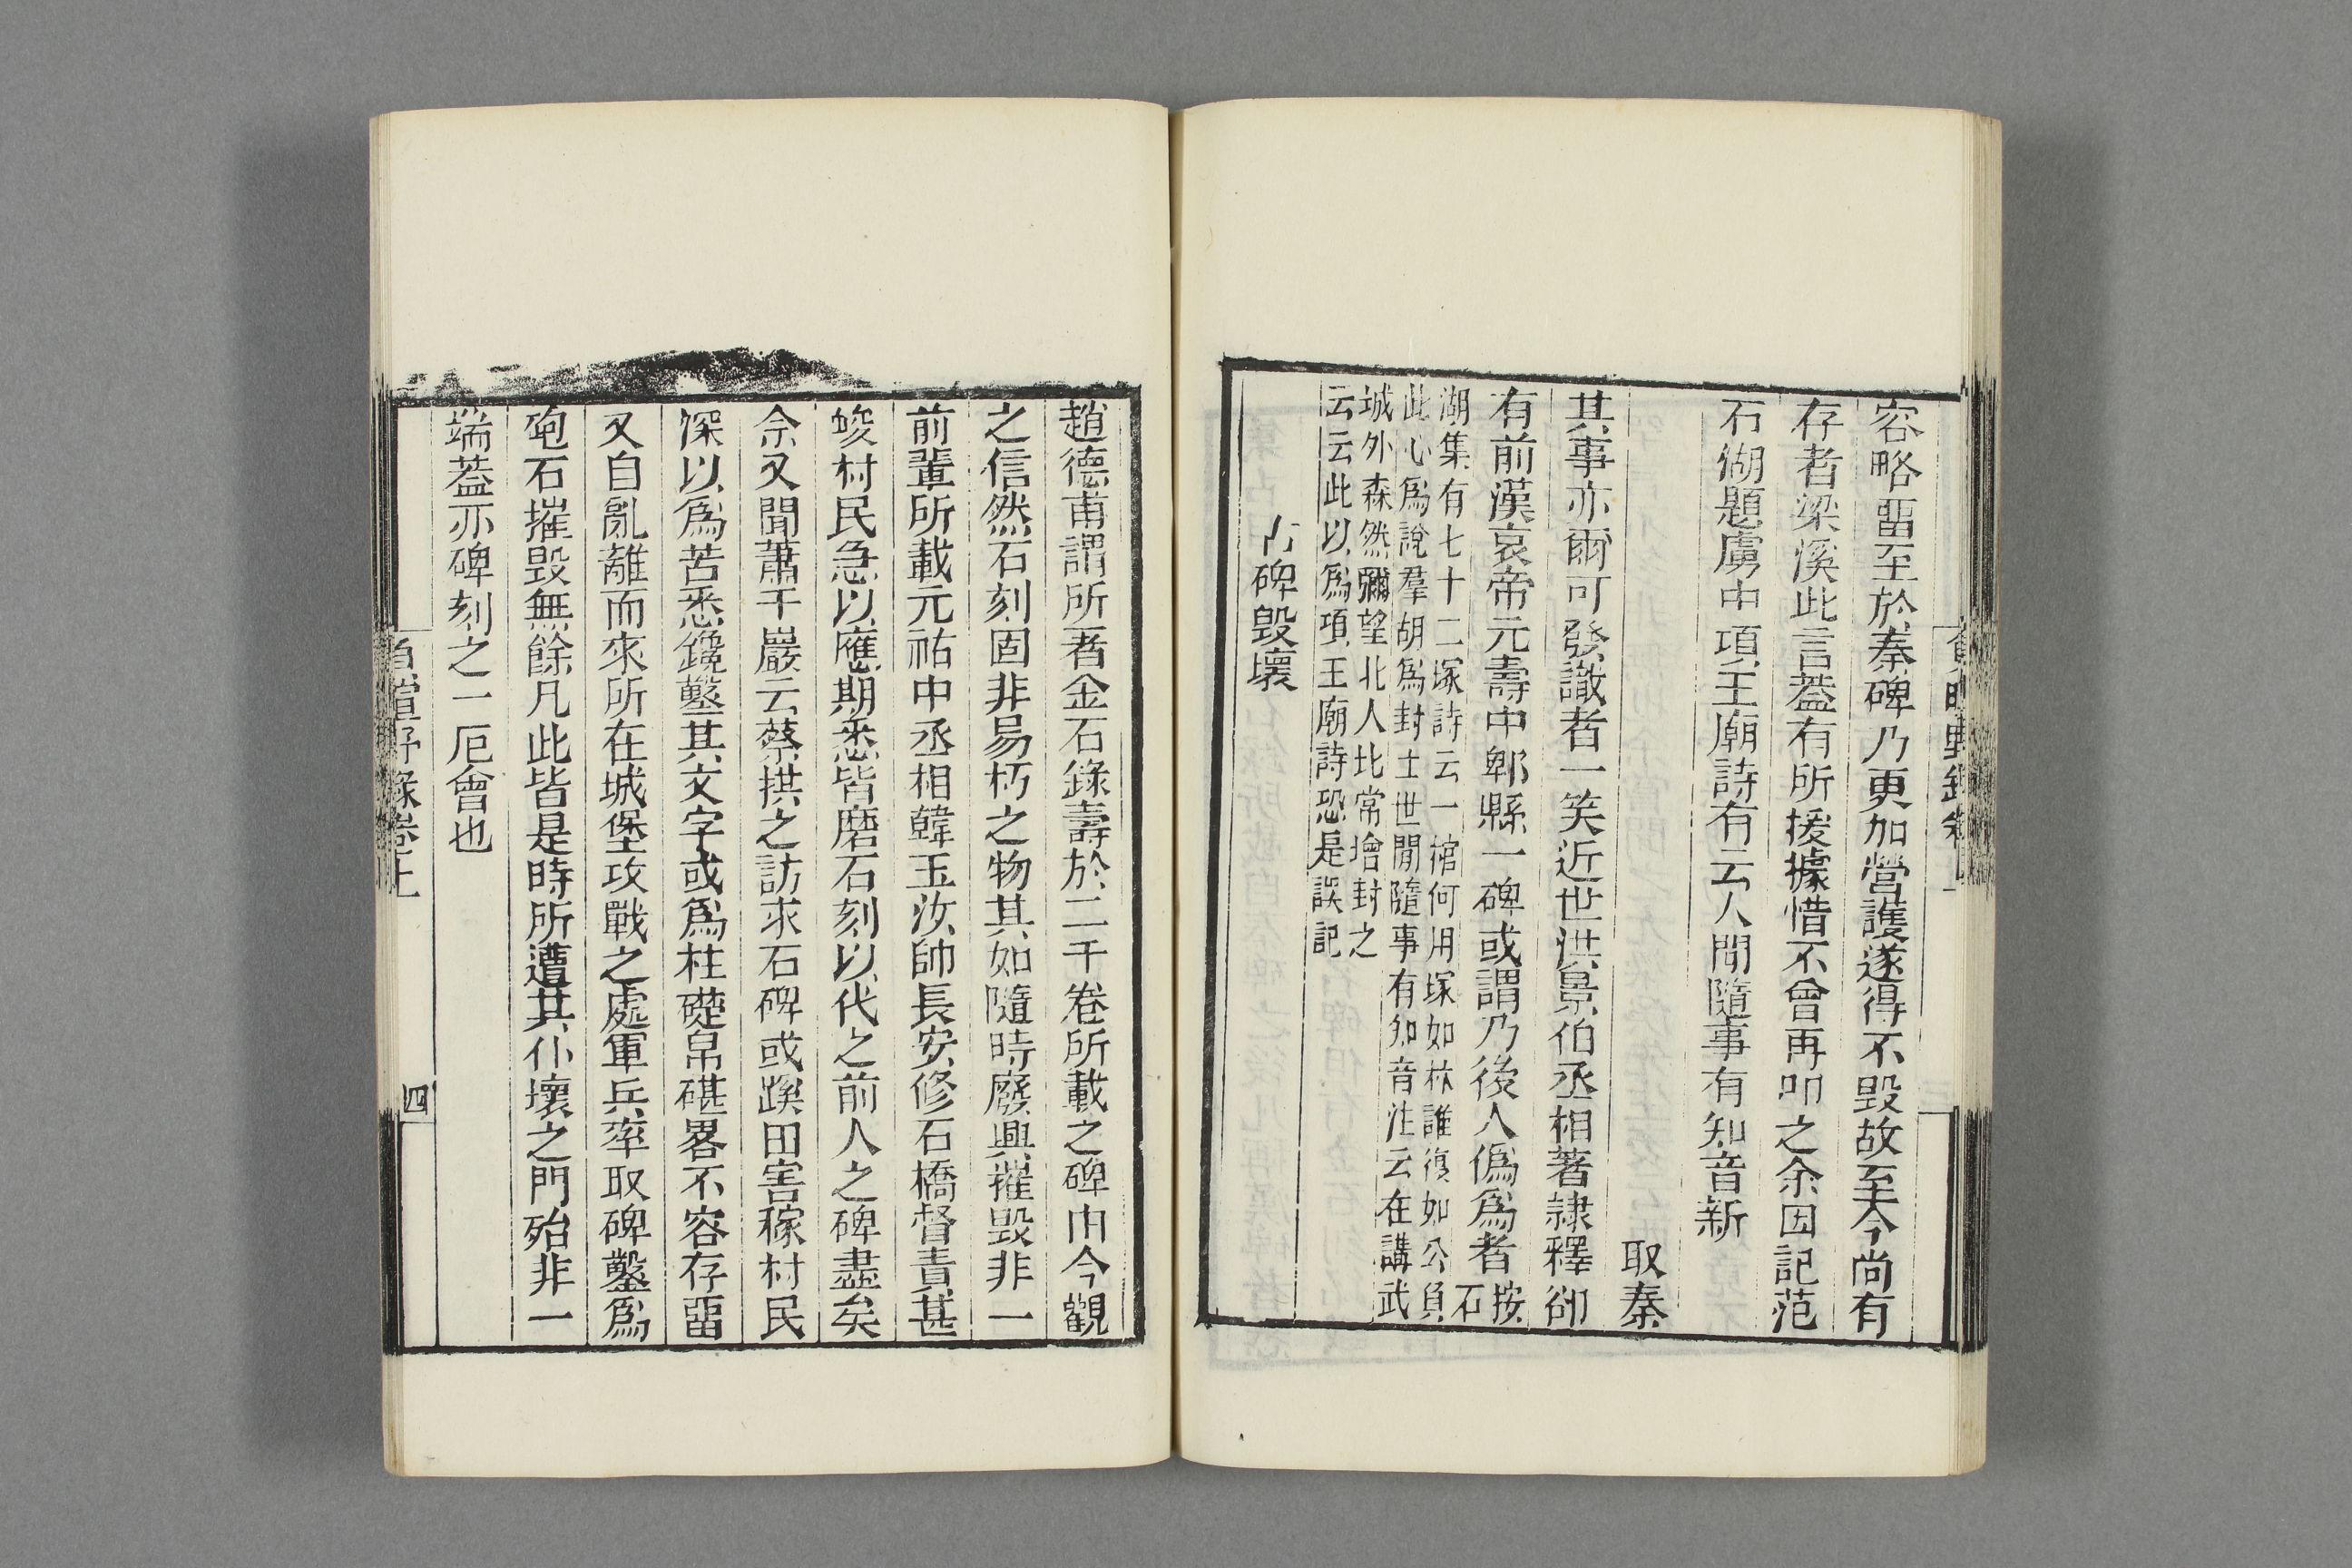 容略畱至於秦碑乃更加營護遂得不毀故至今尚有
存者梁溪此言葢有所援據惜不曾再叩之余因記范
石湖題虜中項王廟詩有云人間隨事有知音新
取秦
其事亦爾可發識者一笑近世洪景伯丞相著隷釋卻
有前漢哀帝元壽中郫縣一碑或謂乃後人僞爲者按石
湖集有七十二塚詩云一棺何用塚如林誰復如公負
此心爲說羣胡爲封土世閒隨事有知音注云在講武
城外森然彌望北人比常增封之
云云此以爲項王廟詩恐是誤記
古碑毀壞
趙德甫謂所著金石錄壽於二千卷所載之碑由今觀
之信然石刻固非易朽之物其如隨時廢興摧毀非一
前輩所載元祐中丞相韓玉汝帥長安修石橋督責甚
峻村民急以應期悉皆磨石刻以代之前人之碑盡矣
余又聞蕭千巖云蔡拱之訪求石碑或蹊田害稼村民
深以爲苦悉鑱鑿其文字或爲柱礎帛碪畧不容存畱
又自亂離而來所在城堡攻戰之處軍兵率取碑鑿爲
砲石摧毀無餘凡此皆是時所遭其仆壞之門殆非一
端葢亦碑刻之一厄會也
負暄野錄卷上
四